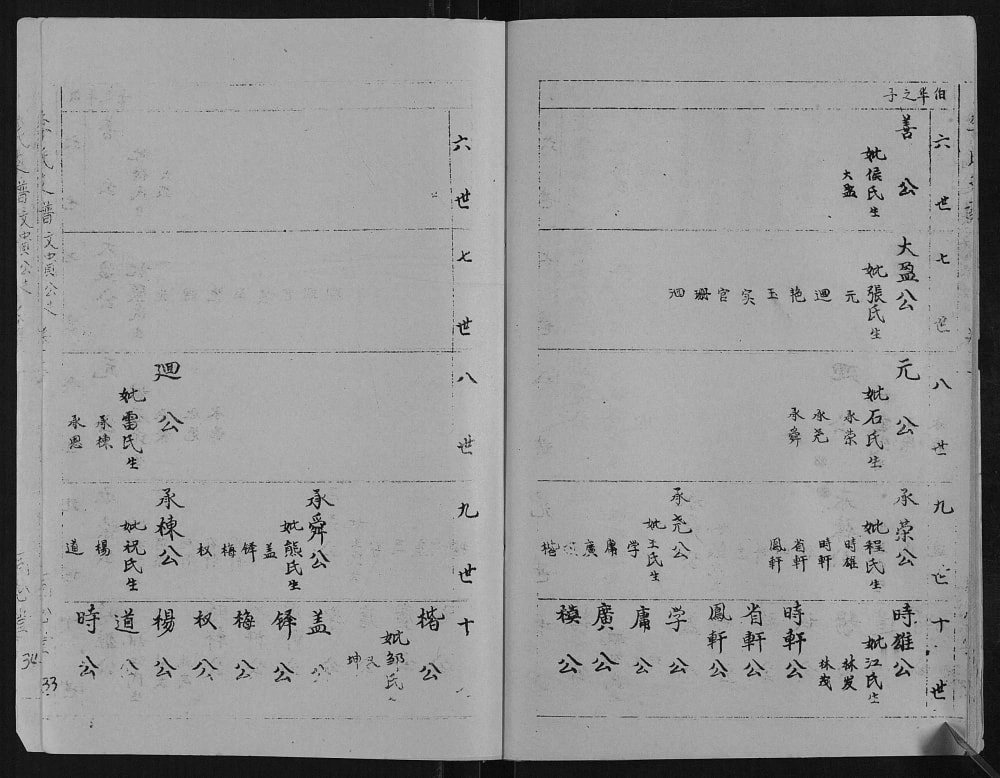 伯华之子
六世
善公
妣侯氏生
大盈
七世
大盈公
妣張氏生
元
迴
艳
玉
实
官
珊
泗
八世
元公
妣石氏生
承荣
承尧
承舜
九世
承荣公
妣程氏生
時雄
時軒
省軒
鳳軒
承尧公
妣王氏生
学
庸
廣
楷
十世
時雄公
妣江氏生
林发
林茂
時軒公
省軒公
鳳軒公
学公
庸公
廣公
模公
六世
七世
八世
迴公
妣雷氏生
承棟
承恩
九世
承舜公
妣熊氏生
盖
铎
梅
权
承棟公
妣祝氏生
楊
道
十
楷公
妣邹氏
坤
盖公
铎公
梅公
权公
楊公
道公
時公
李氏
譜文
公
34
33